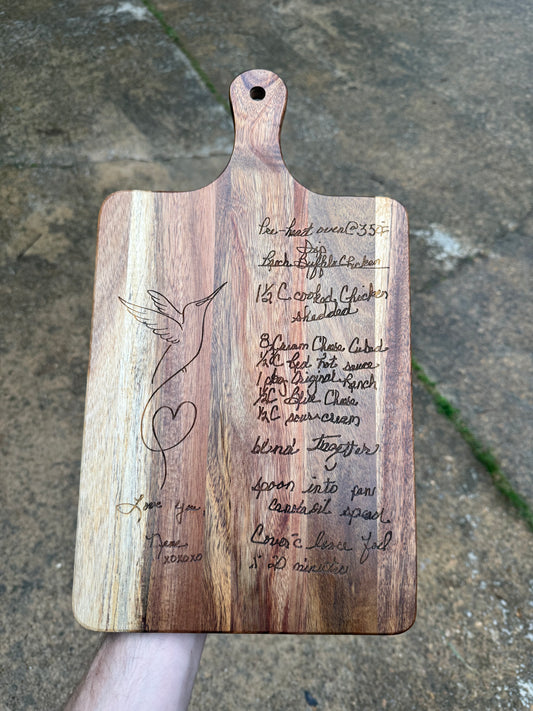 Pre-heat oven @ 350
Dip
Ranch Buffalo Chicken
1½ C cooked Chicken
shedded
8 Cream Chese Cubed
½ C Red hot sauce
1 pkg Original Ranch
½ C Blue Chese
½ C sour cream
blend together
spoon into pan
spead
Cover c loose foil
20 minutes
Love you,
xoxoxo